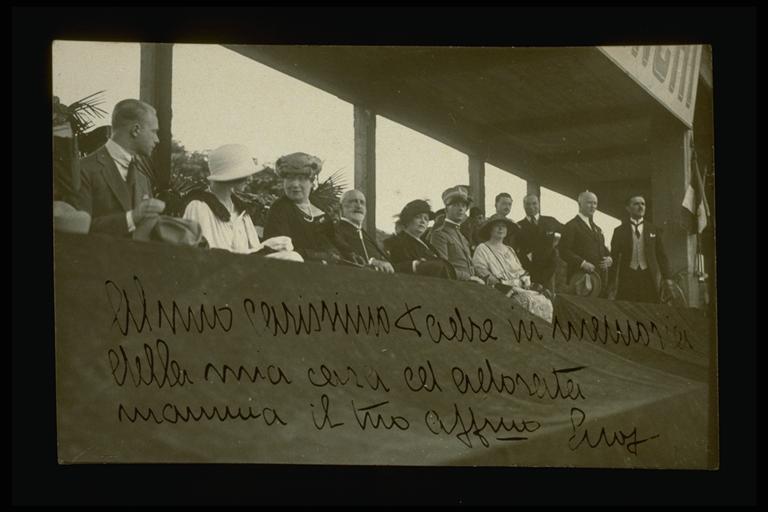 Al mio carissimo Padre in memoria
della mia cara ed adorata
mamma il tuo affmo